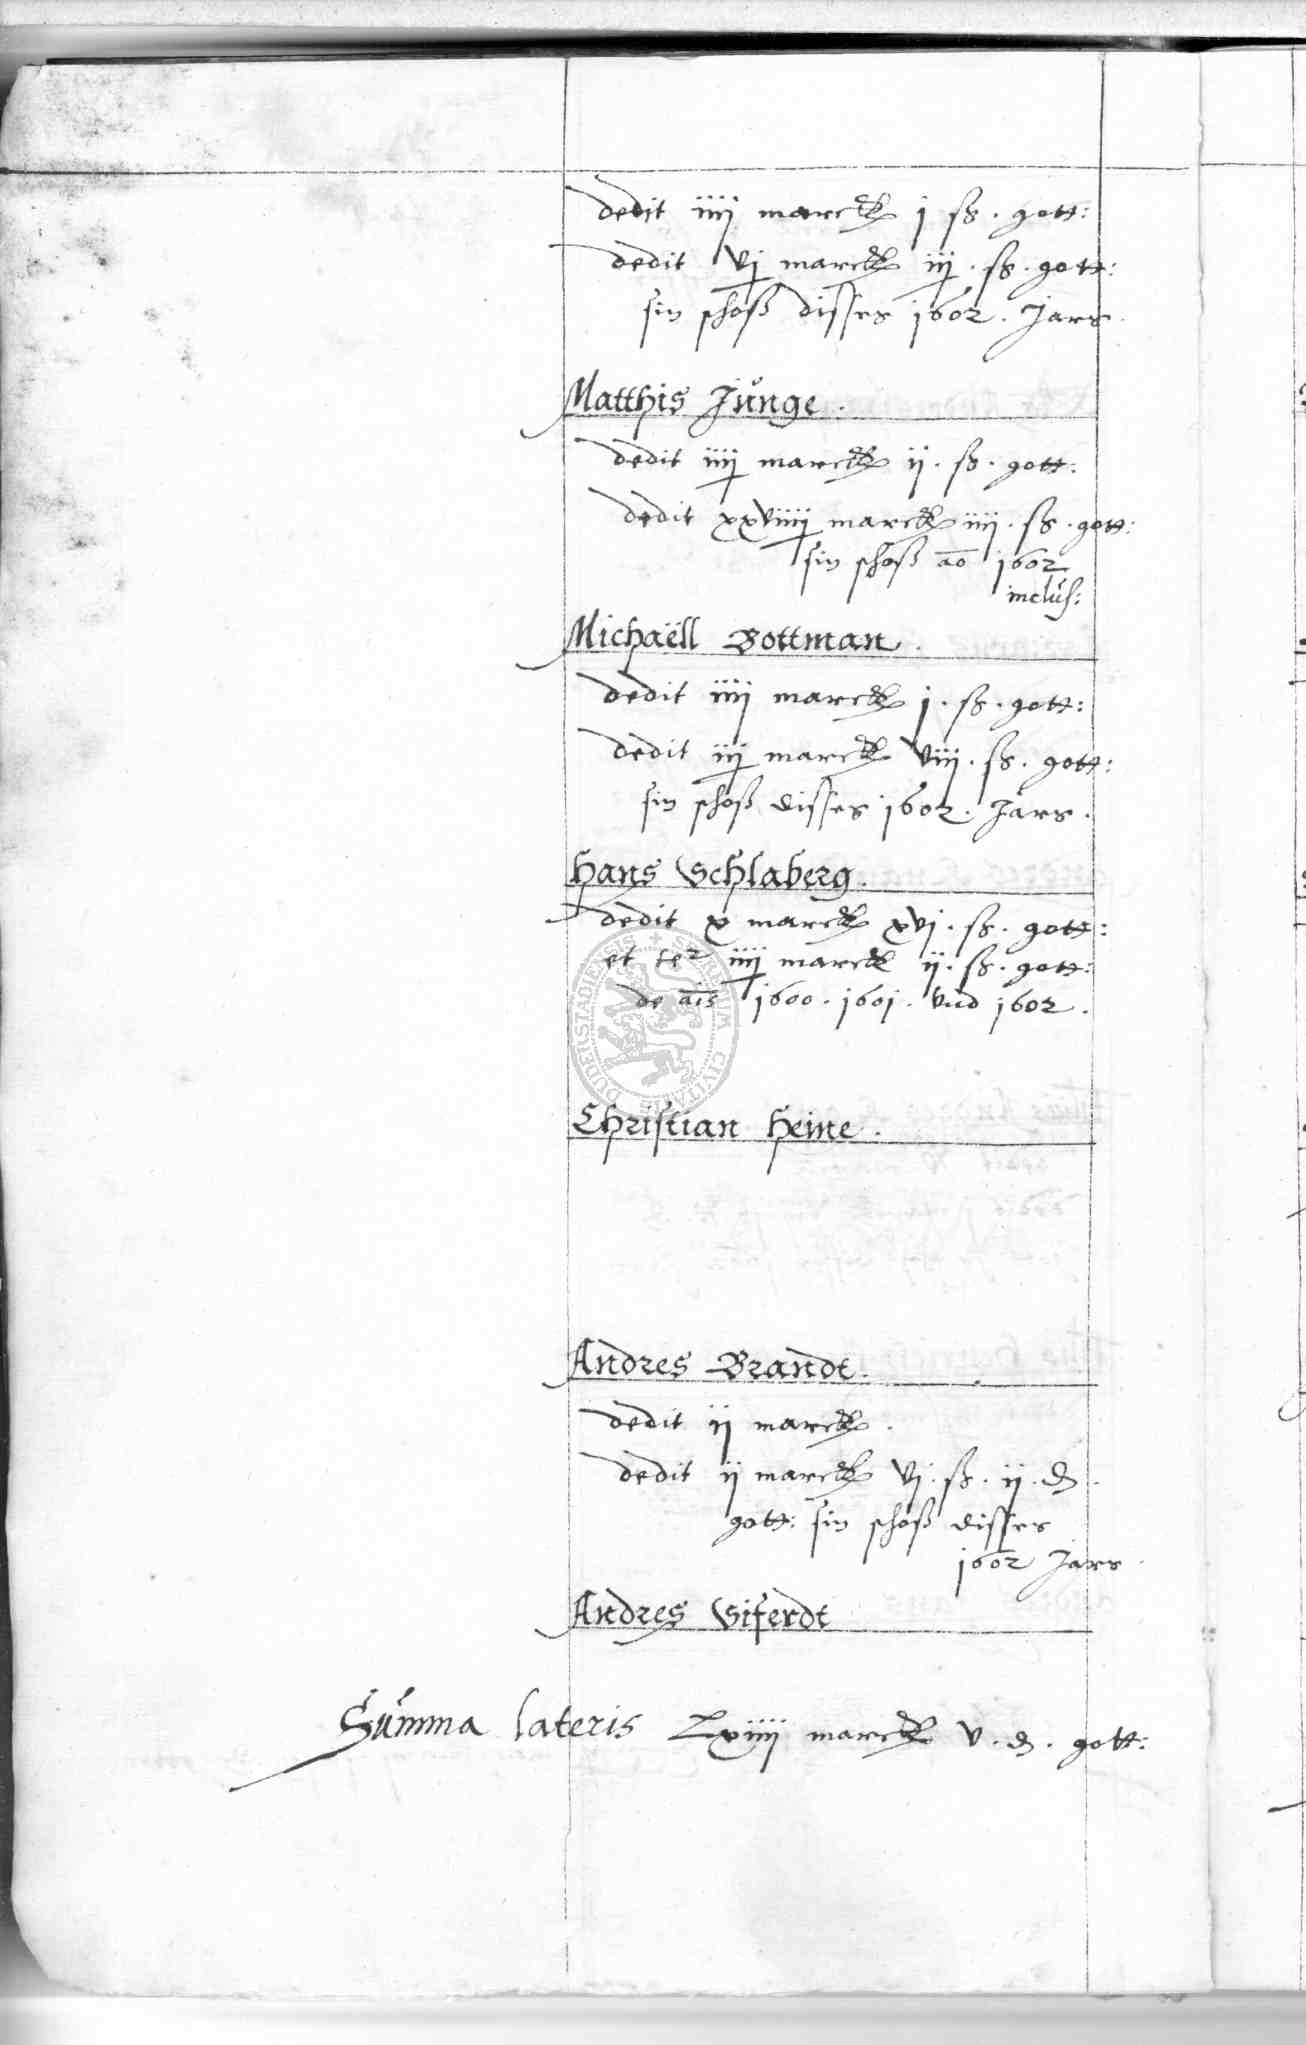 dedit iiij marck j ß. gott:
dedit vj marck iij. ß. gott:
sin schoß disses 1602. Jars.
Matthis Jůnge.
dedit iiij marck ij. ß. gott:
dedit xxviiij marck iiij. ß. gott:
sin schoß ao 1602
inclus:
Michaëll Bottman.
dedit iiij marck j. ß. gott:
dedit iij marck viij. ß. gott:
sin schoß disses 1602. Jars.
Hans Schlaberg.
dedit x marck xvj. ß. gott:
et ter iiij marck ij. ß. gott:
de ais 1600. 1601. vnd 1602.
Christian Heine.
Andres Brandt.
dedit ij marck.
dedit ij marck vj. ß. ij. d.
gott: sin schoß disses
1602 Jars.
Andres Siferdt
Summa lateris Lxiiij marck v. d. gott:
SIGILLUM CIVITATIS DUDERSTADIENSIS